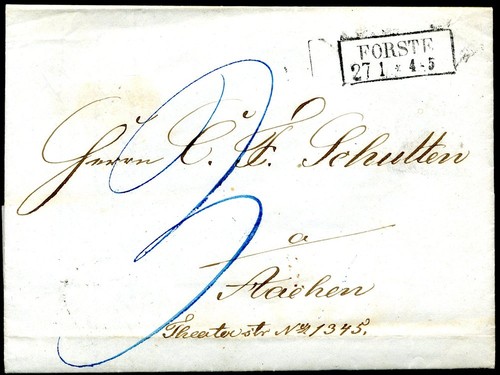 FORSTE
27 1 * 4-5
Herrn C. F. Schulten
a
Aachen
Theaterstr No 1345.
3